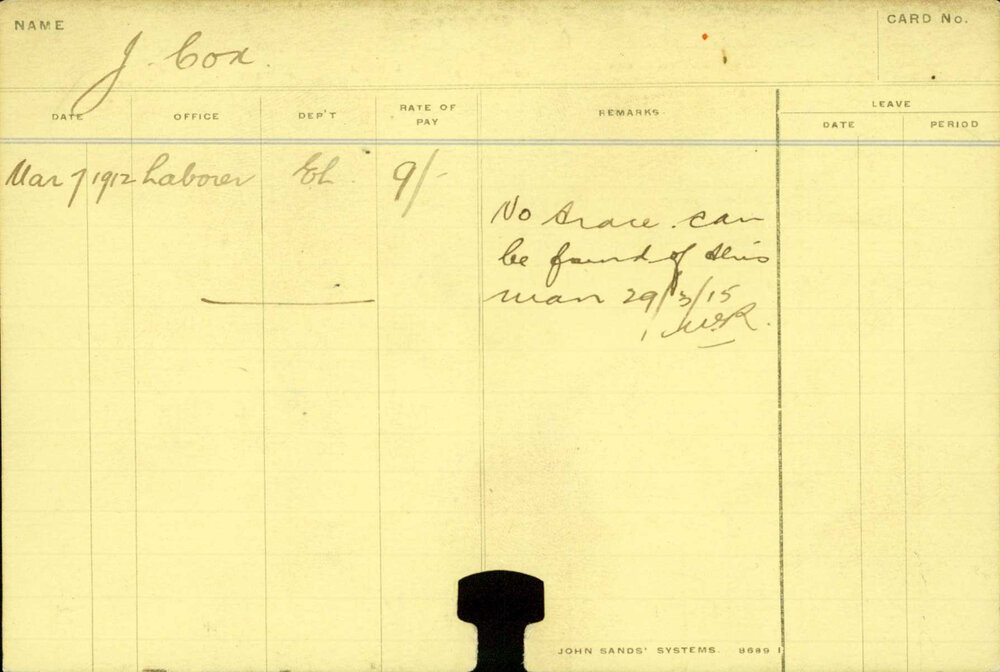 NAME
J. Cox.
CARD No.
DATE OFFICE DEP'T RATE OF PAY REMARKS LEAVE
DATE PERIOD
Mar 7 1912 Laborer EL. 9/-
No trace can
be found of this
man 29/3/15
JOHN SANDS' SYSTEMS. 8689